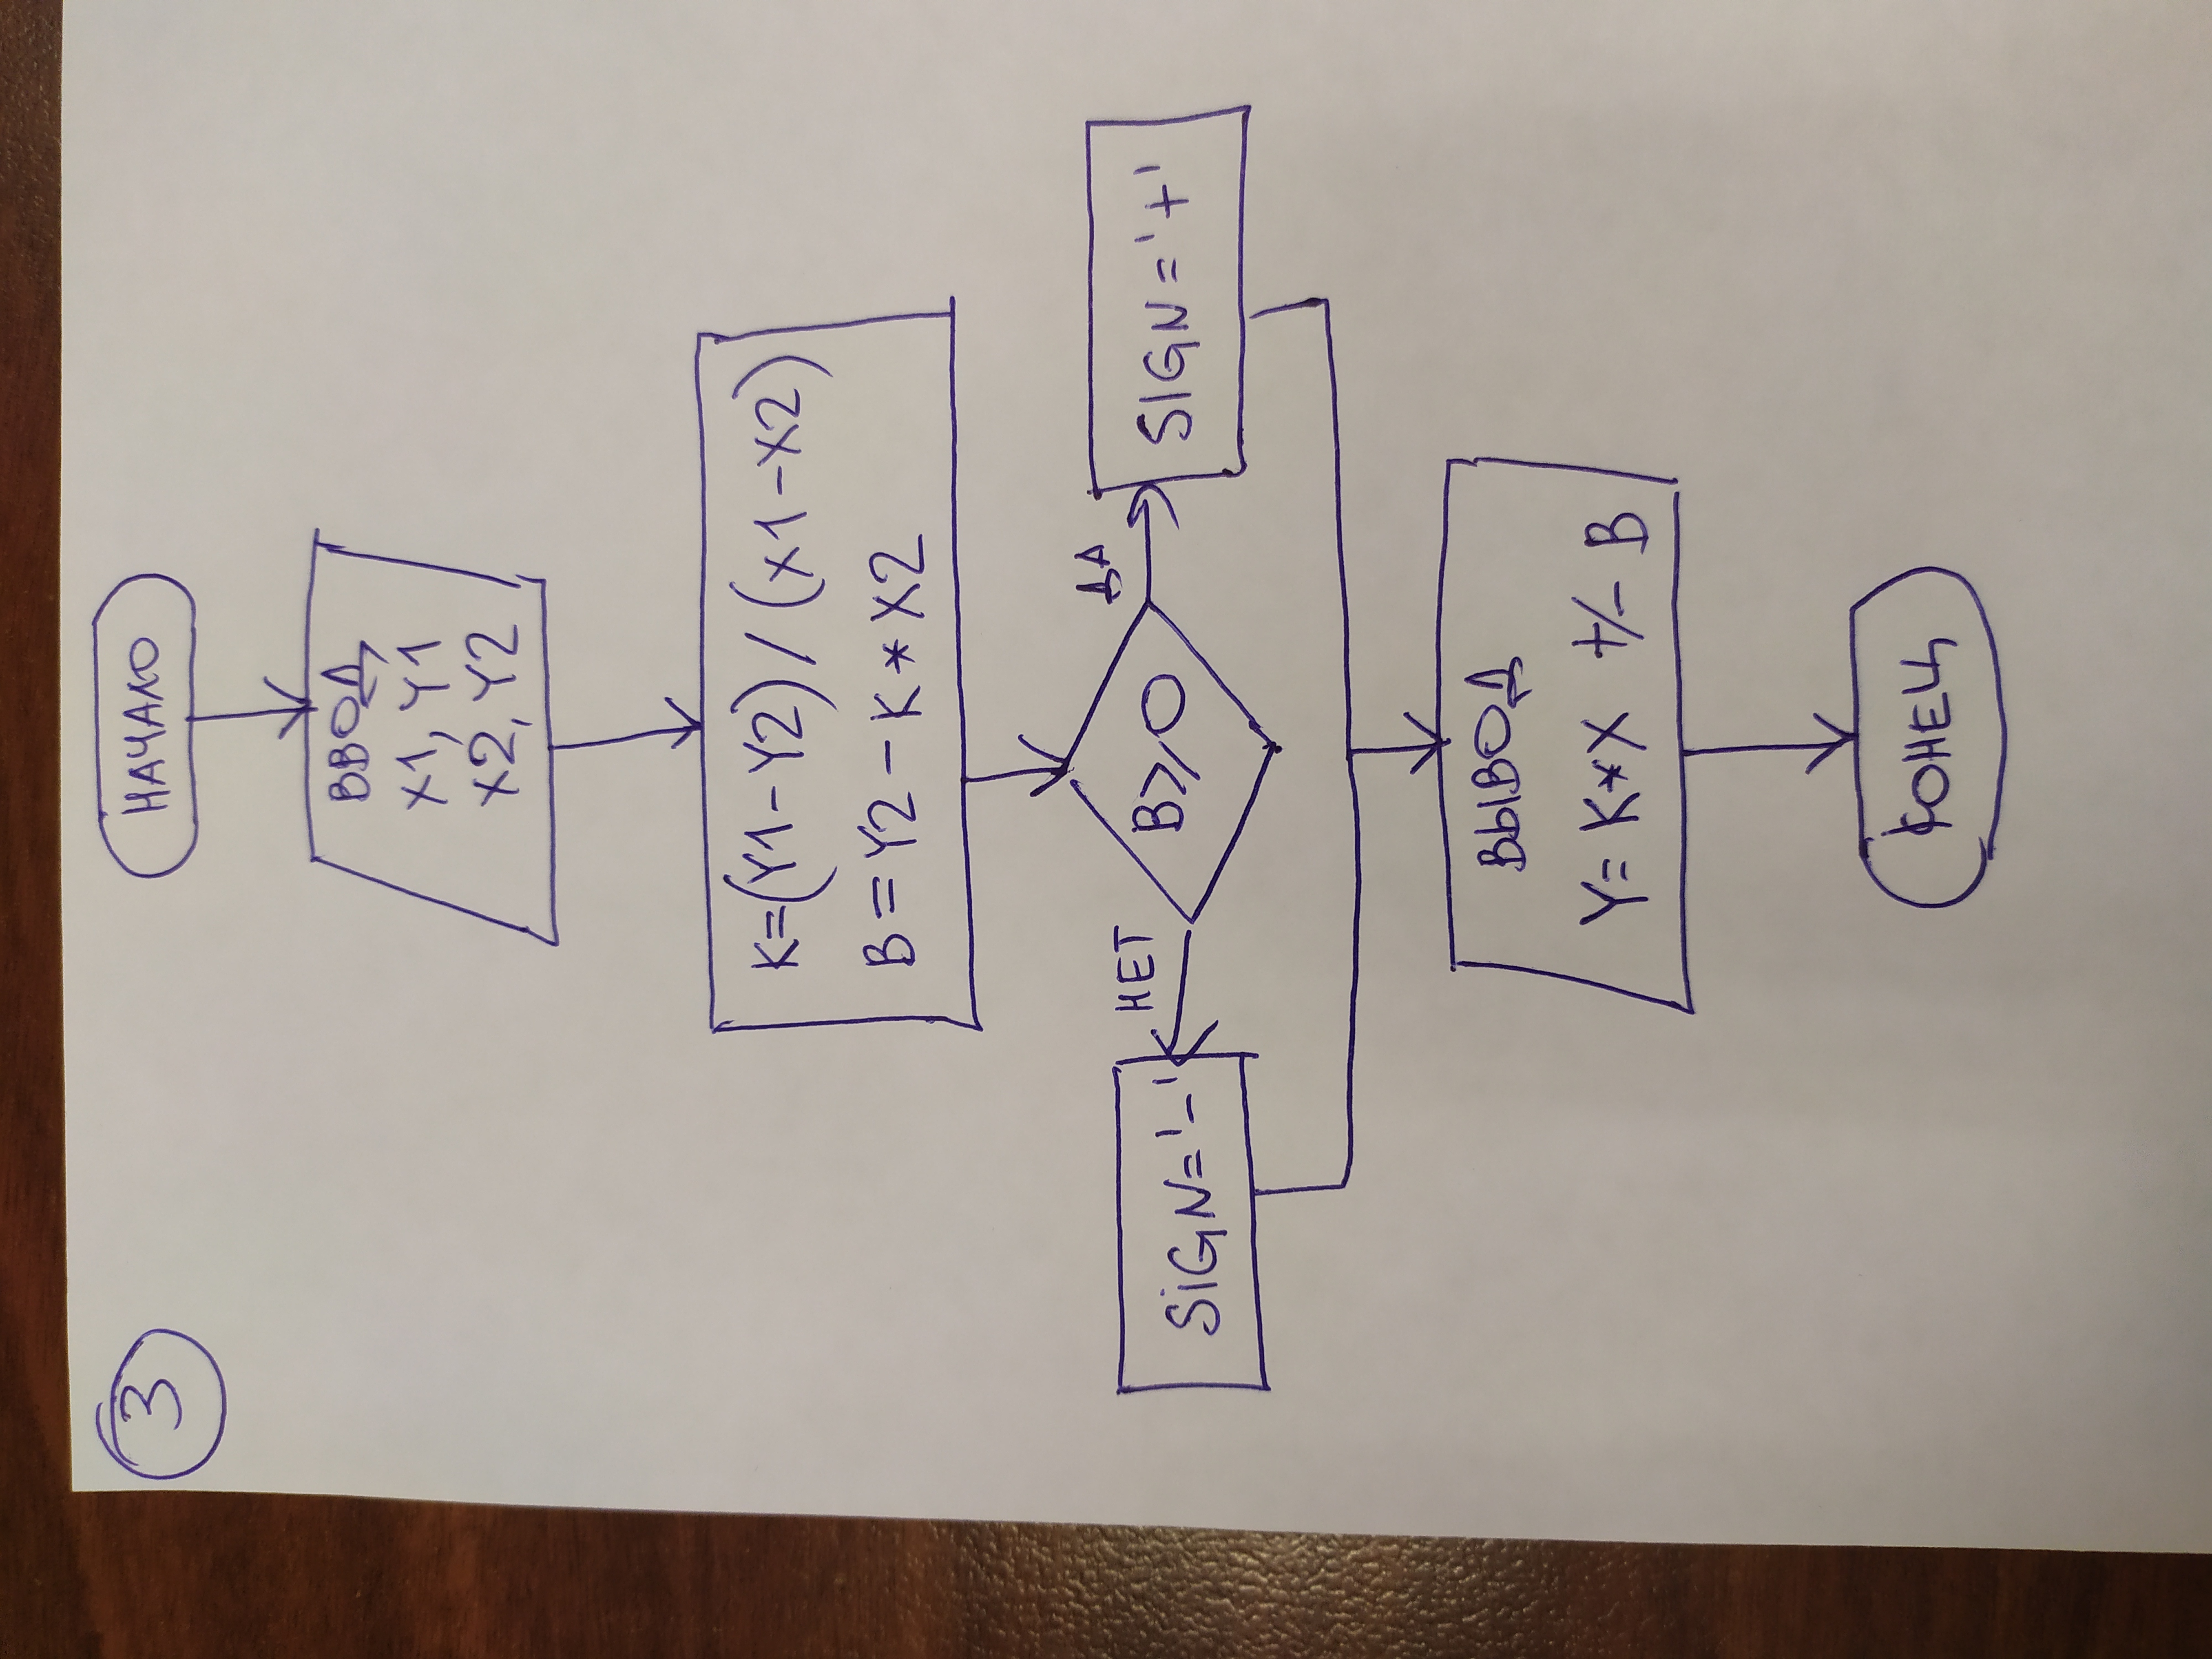 3
НАЧАЛО
ВВОД
X1, Y1
X2, Y2
K=(Y1-Y2) / (X1-X2)
B=Y2-K*X2
НЕТ
ДА
SiGN='-'
B⩾0
SIGN='+'
ВЫВОД
Y= K*X +/- B
КОНЕЦ